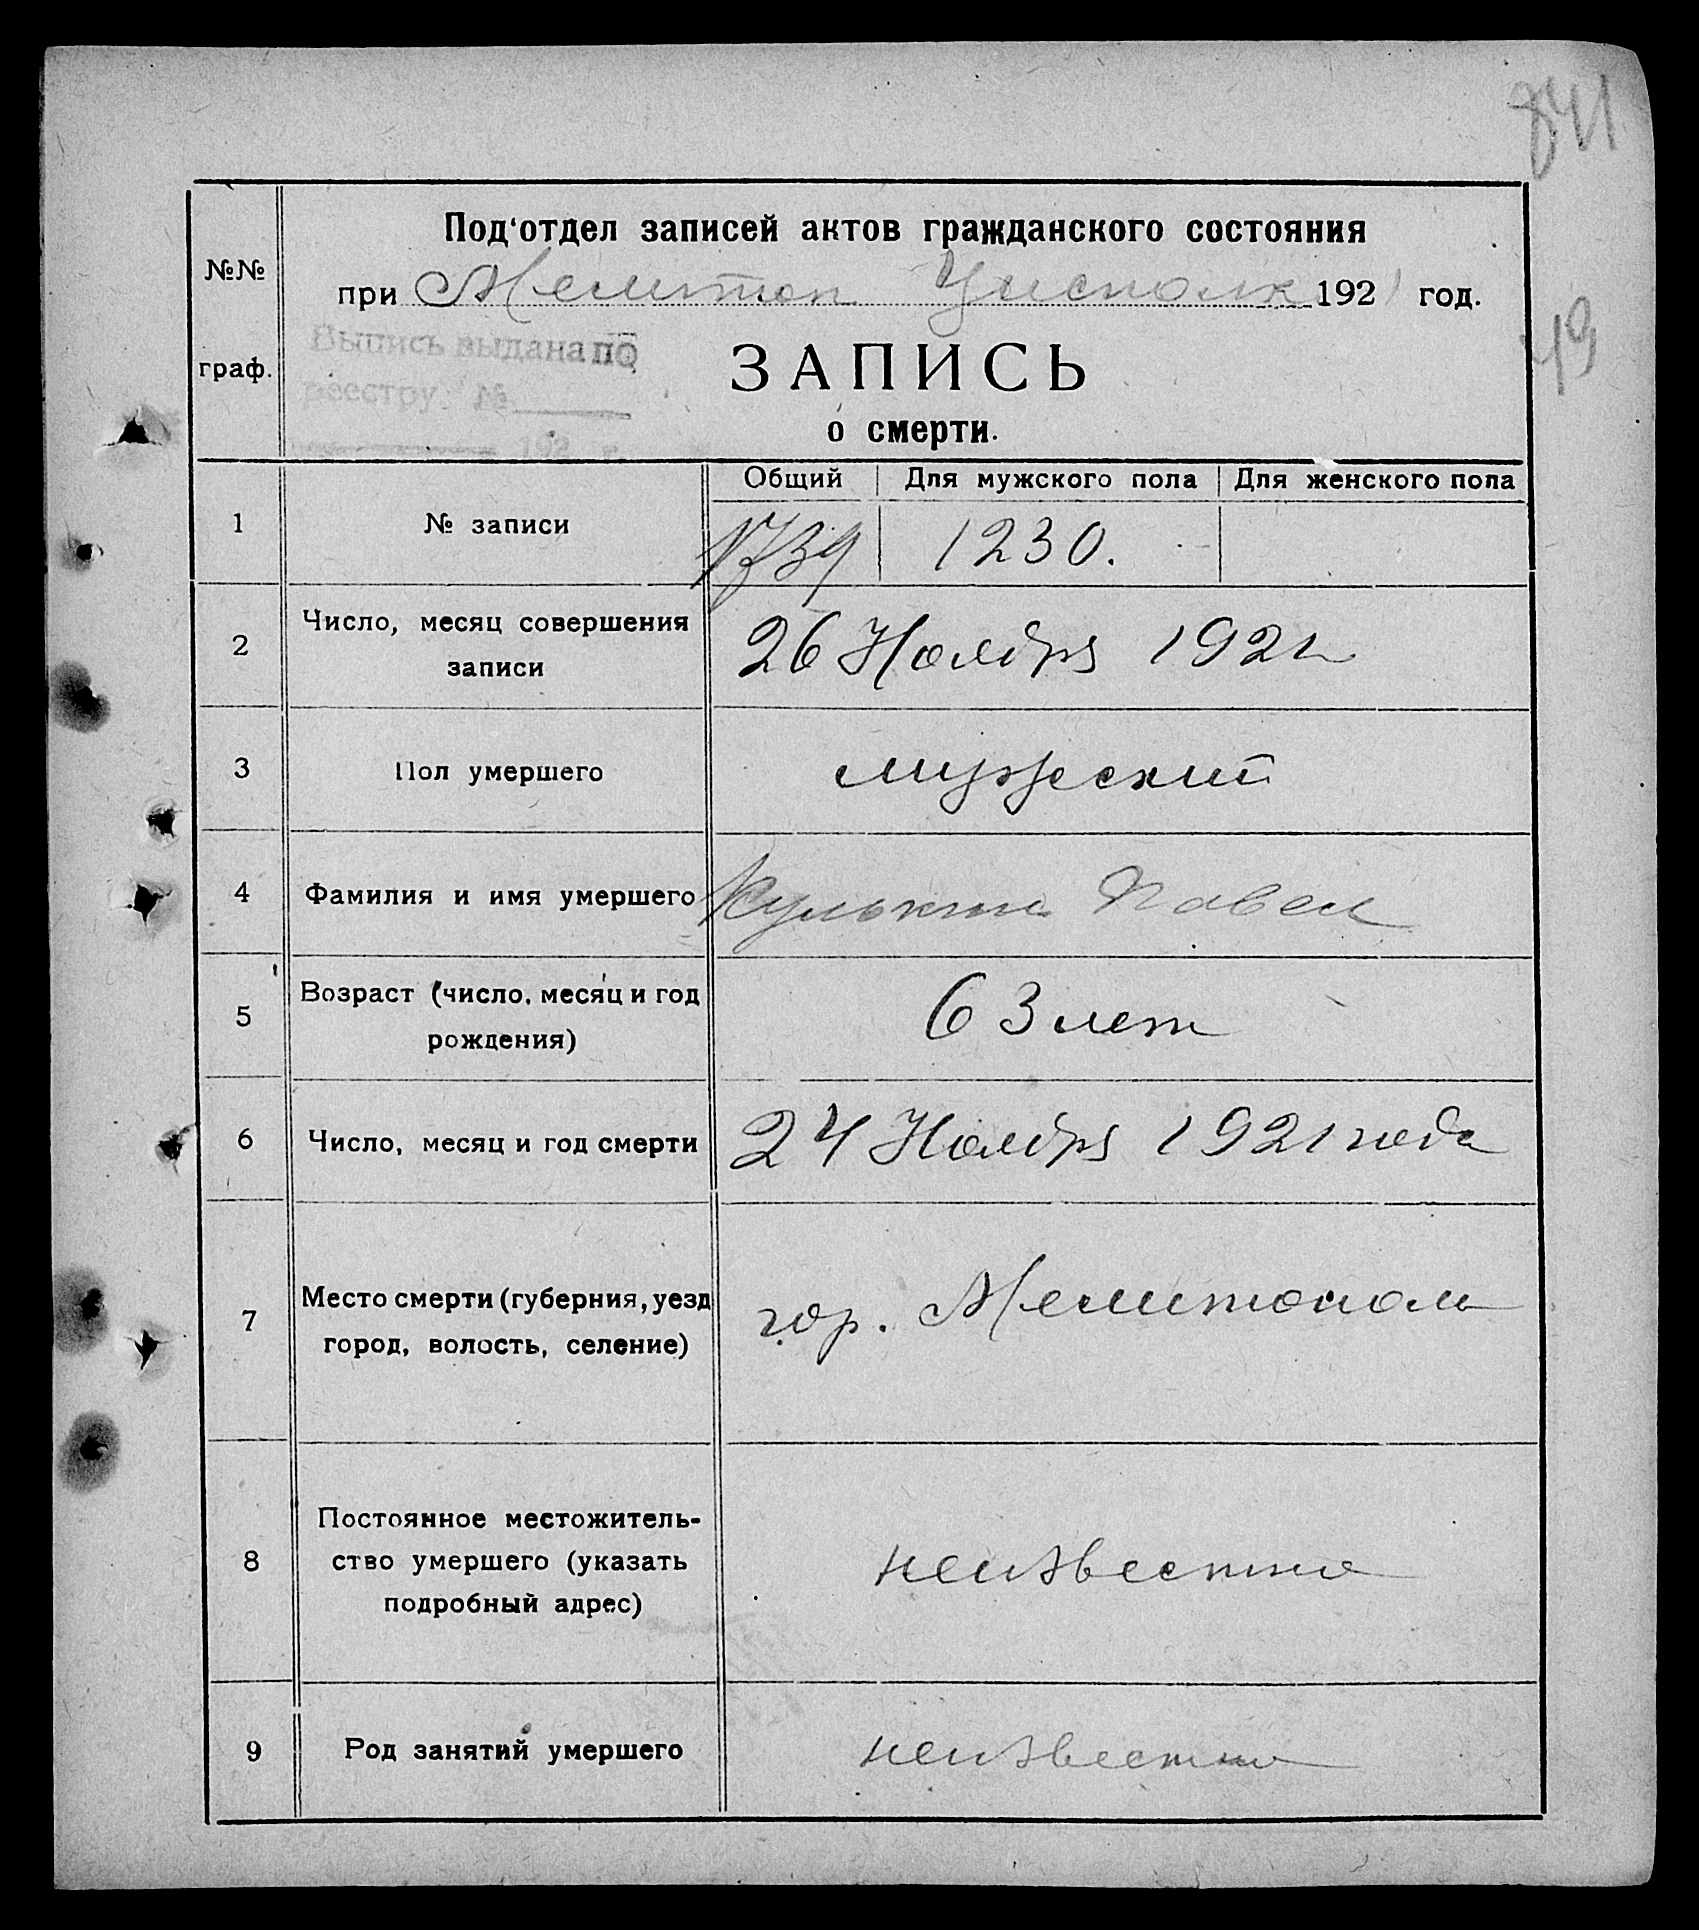 841
Под'отдел записей актов гражданского состояния
при Мелитоп Уисполк 1921 год.
49
Выпись выдана по
реестру №
192 г.
№№
граф.
ЗАПИСЬ
о смерти.
Общий Для мужского пола Для женского пола
1 № записи 1739 1230.
2 Число, месяц совершения
записи
26 Ноября 1921 г
3 Пол умершего мужеский
4 Фамилия и имя умершего Павел
5 Возраст (число, месяц и год
рождения)
63 лет
6 Число, месяц и год смерти 24 Ноября 1921 года
7 Место смерти (губерния, уезд
город, волость, селение)
гор. Мелитополь
8 Постоянное местожитель-
ство умершего (указать
подробный адрес)
неизвестно
9 Род занятий умершего неизвестно